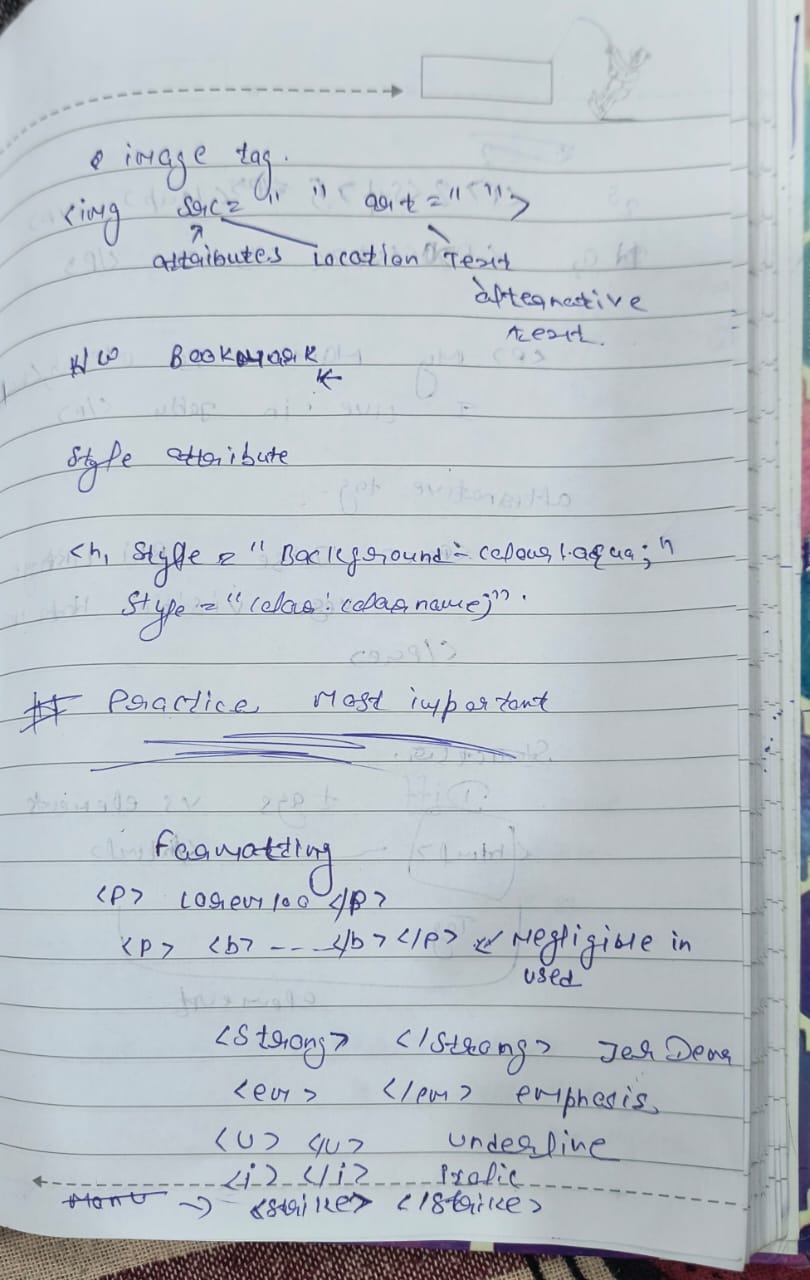 image tag.
<img src = " " art = " ">
attributes location Text
alternative
text.
H/W Bookmark
Style attribute
<h, Style = " Background - colour : aqua ; "
Style = "color : color name;" .
# Practice Most important
Formatting
<P> Lorem 100 </P>
<P> <b> --- </b> </P> Negligible in
used
<Strong> </Strong>
<em> </em> emphesis,
<U> </U> underline
<i> </i> Italic
→ <strike> </strike>